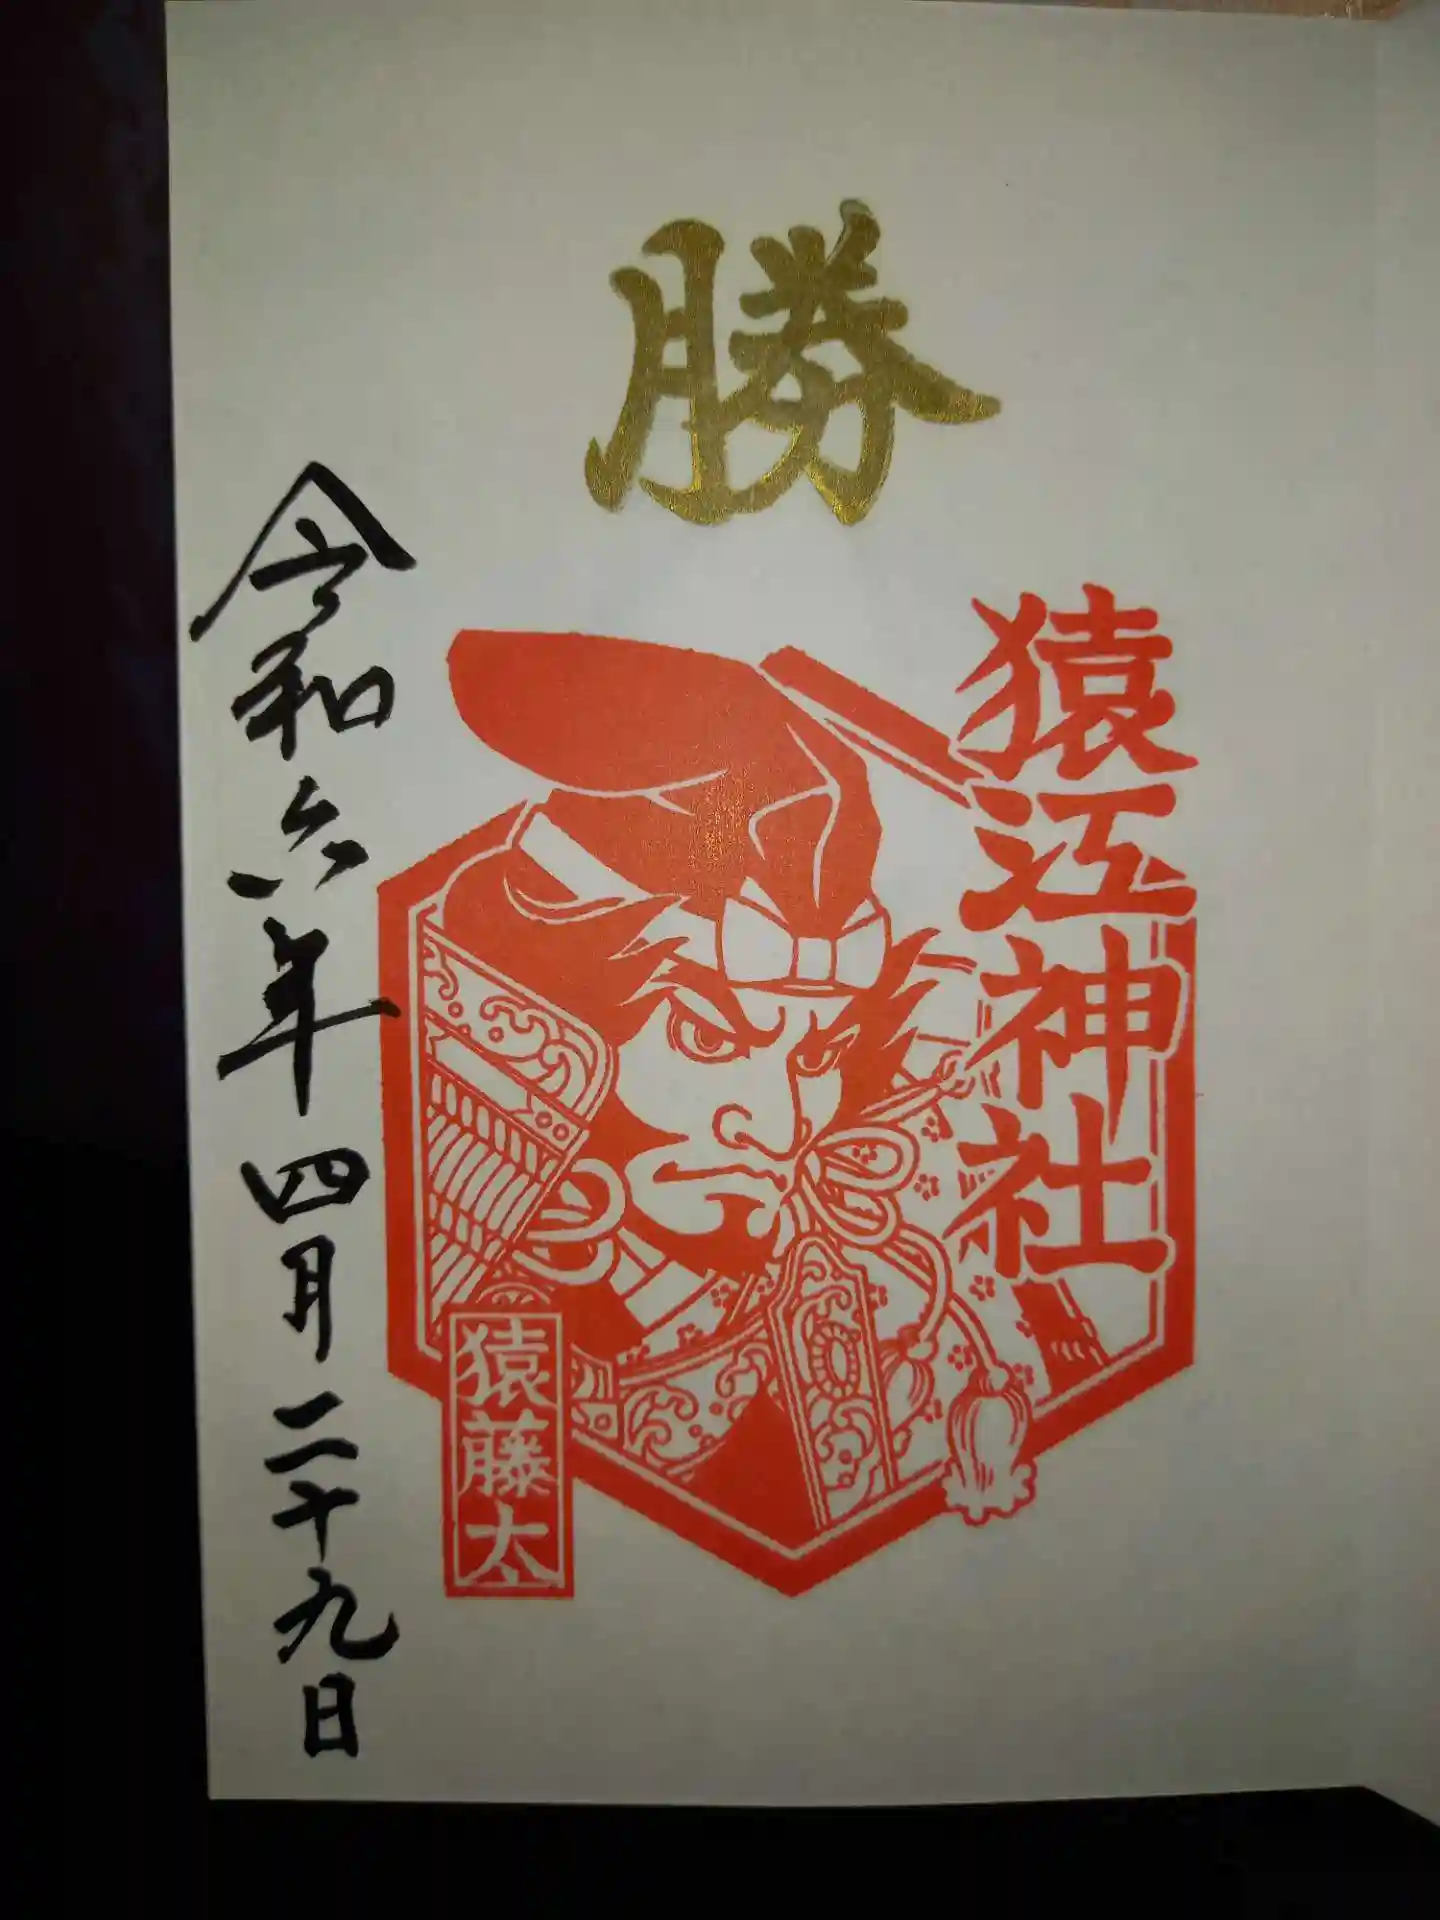 勝
猿江神社
猿藤太
令和六年四月二十九日